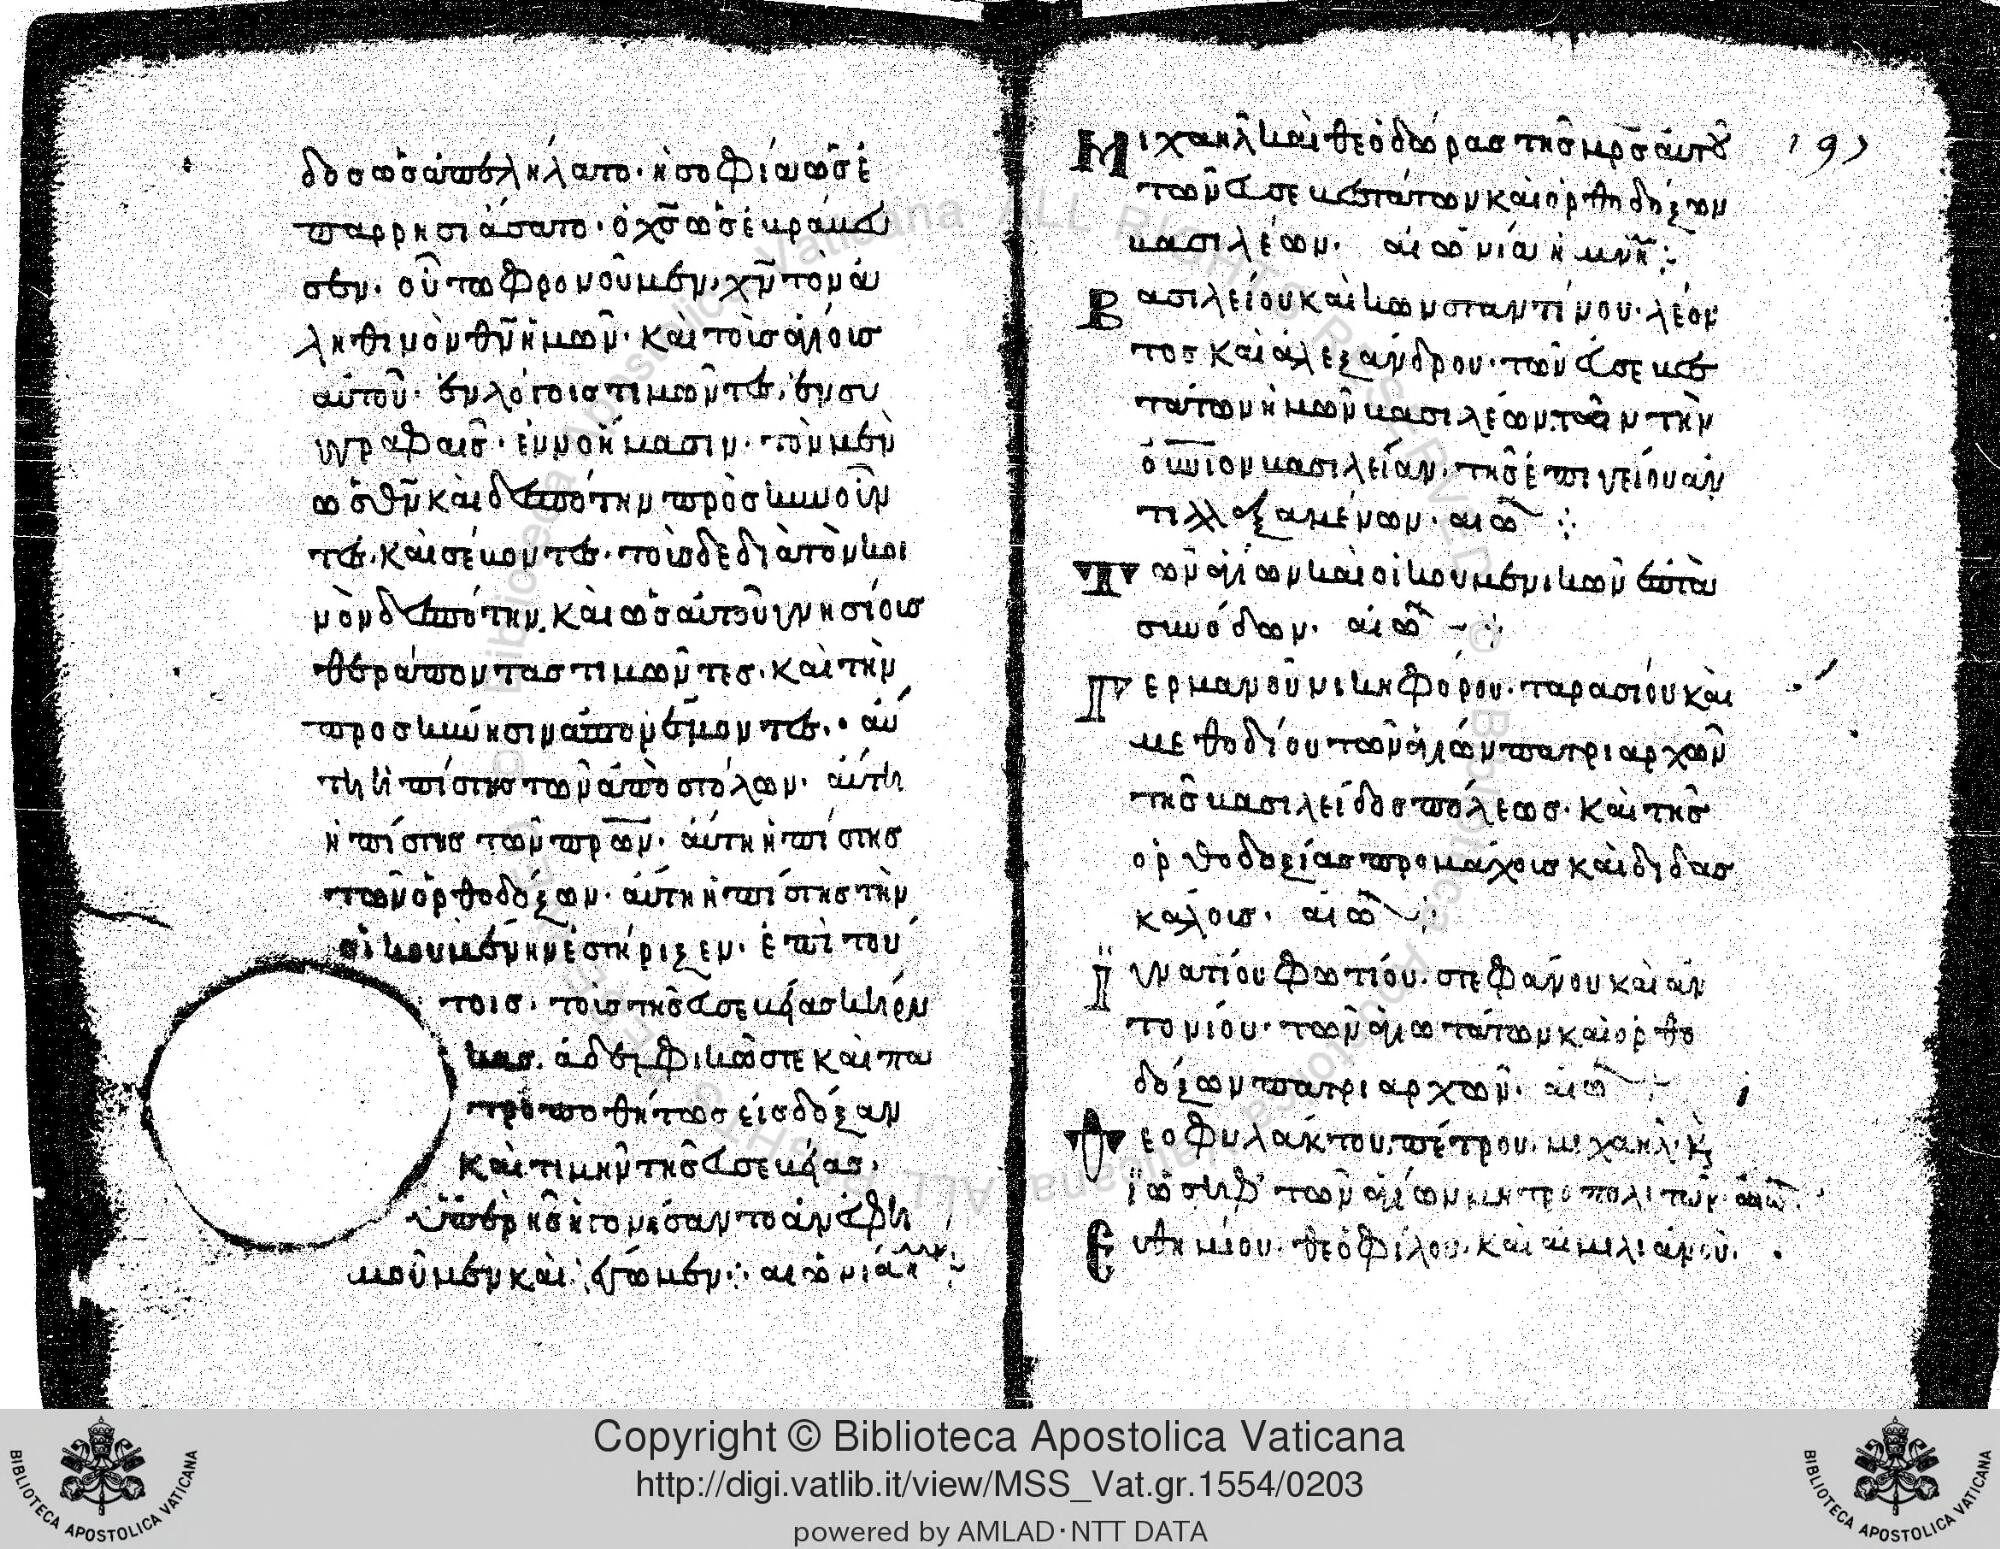 δοσ ὡσ ἀπελήλατο· ἡ σοφία ὡσ ἐ
παρρησιάσατο· ὁ χσ ὡσ ἐκράβευ
σεν· οὕτω φρονοῦμεν, χν τὸν ἀ
ληθινὸν θν ἡμῶν· καὶ τοὺσ ἁγίουσ
αὐτοῦ· ἐν λόγοισ τιμῶντεσ, ἐν συ
γραφαῖσ· ἐν νοήμασιν· τὸν μὲν
ὡσ θν καὶ δεσπότην προσκυνοῦν
τεσ, καὶ σέβοντεσ· τοὺσ δὲ διὰ τὸν κοι
νὸν δεσπότην, καὶ ὡσ αὐτοῦ γνησίουσ
θεράποντασ τιμῶντεσ· καὶ τὴν
προσκύνησιν ἀπονέμοντεσ· αὕ
τη ἡ πίστησ τῶν ἀποστόλων· αὕτη
ἡ πίστησ τῶν πρῶν· αὕτη ἡ πίστησ
τῶν ὀρθοδόξων· αὕτη ἡ πίστησ τὴν
οἰκουμένην ἐστήριξεν· ἐπὶ τού
τοισ· τοὺσ τῆσ εὐσεβείασ κήρυ
κασ, ἀδελφικῶσ τε καὶ πα
τροποθήτωσ εἰσ δόξαν
καὶ τιμὴν τῆσ εὐσεβείασ,
ὑπὲρ ἧσ ἠγονήσαντο ἀνευφη
μοῦμεν καὶ λέγωμεν: αἰωνία ἡ μνή
Μιχαὴλ καὶ θεοδώρασ τῆσ μρσ αὐτοῦ 191
τῶν εὐσεβεστάτων καὶ ὀρθοδόξων
βασιλέων· αἰωνία ἡ μνή:
Βασιλείου καὶ κωνσταντίνου· λέον
τοσ καὶ ἀλεξάνδρου· τῶν εὐσεβεσ
τάτων ἡμῶν βασιλέων, τῶν τὴν
οὐνιον βασιλείαν, τῆσ ἐπιγείου ἀν
τιλλαξαμένων· αἰω:
Τῶν ἁγίων καὶ οἰκουμενικῶν ἑπτὰ
συνόδων· αἰω:
Γερμανοῦ νικηφόρου· ταρασίου καὶ
μεθοδίου τῶν ἁγίων πατριαρχῶν
τῆσ βασιλείδοσ πόλεωσ· καὶ τῆσ
ὀρθοδοξίασ προμάχοισ καὶ διδασ
κάλοισ· αἰω:
Ἰγνατίου φωτίου· στεφάνου καὶ ἀν
τονίου· τῶν ἁγιωτάτων καὶ ὀρθο
δόξων πατριαρχῶν· αἰω
Θεοφυλάκτου, πέτρου· μιχαὴλ· κ
ἰωσὴφ τῶν ἁγίων μητροπολιτῶν· αἰω
Ευθημίου· θεοφίλου· καὶ αἰμιλιάνοῦ·
Copyright © Biblioteca Apostolica Vaticana
http://digi.vatlib.it/view/MSS_Vat.gr.1554/0203
powered by AMLAD·NTT DATA
BIBLIOTECA APOSTOLICA VATICANA
BIBLIOTECA APOSTOLICA VATICANA